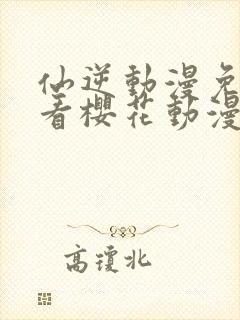 仙逆動漫免
看櫻花動漫
高瓊北